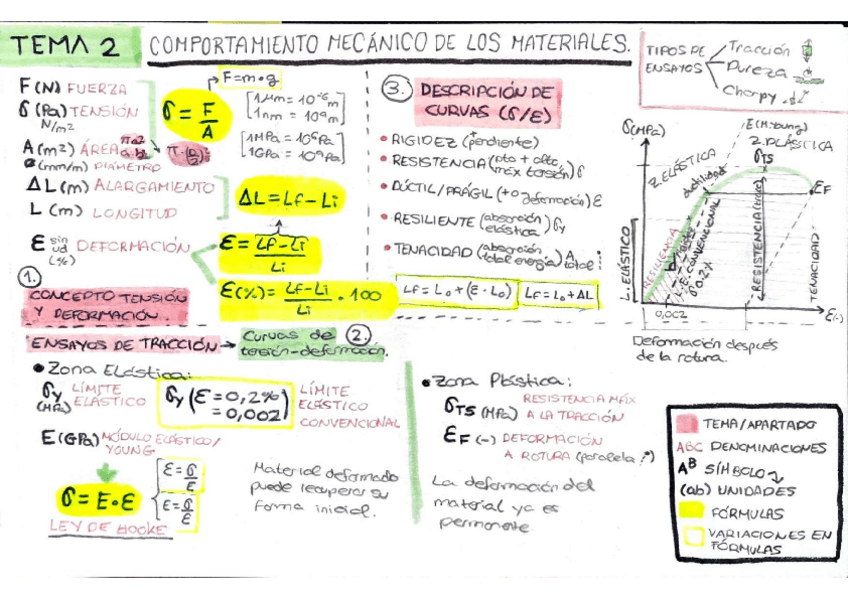 TEMA 2 COMPORTAMIENTO MECÁNICO DE LOS MATERIALES.
TIPOS DE ENSAYOS
Tracción
Dureza
Charpy
F(N) FUERZA
σ (Pa) TENSIÓN
N/m²
A(m²) ÁREA
ø(mm/m) DIÁMETRO
ΔL (m) ALARGAMIENTO
L (m) LONGITUD
ε sin ud DEFORMACIÓN
(%)
F=m·g
σ = F/A
[1μm = 10⁻⁶ m
1nm = 10⁹ m]
[1MPa = 10⁶Pa
1GPa = 10⁹Pa]
ΔL = Lf - Li
ε = Lf-Li / Li
ε(%) = Lf-Li / Li · 100
1.
CONCEPTO TENSIÓN
Y DEFORMACIÓN.
3. DESCRIPCIÓN DE
CURVAS (σ/ε)
• RIGIDEZ (+ pendiente)
• RESISTENCIA (pto + alto, máx tensión) σ
• DÚCTIL/FRÁGIL (+o deformación) ε
• RESILIENTE (absorción elástica) σy
• TENACIDAD (absorción total energía) A total
Lf = L₀ + (ε · L₀)
Lf = L₀ + ΔL
σ(MPa)
E(M.Young)
Z.ELÁSTICA
Z.PLÁSTICA
σTS
ductilidad
εF
Lím. ELÁSTICO
RESILIENCIA
L.E. CONVENCIONAL
σ0.2%
RESISTENCIA
TENACIDAD
0,002
ε(-)
Deformación después
de la rotura.
ENSAYOS DE TRACCIÓN → Curvas de
tensión-deformación.
2.
• Zona Elástica:
σy LÍMITE
(MPa) ELÁSTICO
σy (ε = 0,2%
= 0,002)
LÍMITE
ELÁSTICO
CONVENCIONAL
E(GPa) MÓDULO ELÁSTICO/
YOUNG
σ = E·ε
LEY DE HOOKE
Material deformado
puede recuperar su
forma inicial.
• Zona Plástica:
σTS (MPa) RESISTENCIA MÁX
A LA TRACCIÓN
εF (-) DEFORMACIÓN
A ROTURA (paralela)
La deformación del
material ya es
permanente.
TEMA/APARTADO
ABC DENOMINACIONES
Aᴮ SÍMBOLO
(ab) UNIDADES
FÓRMULAS
VARIACIONES EN
FÓRMULAS